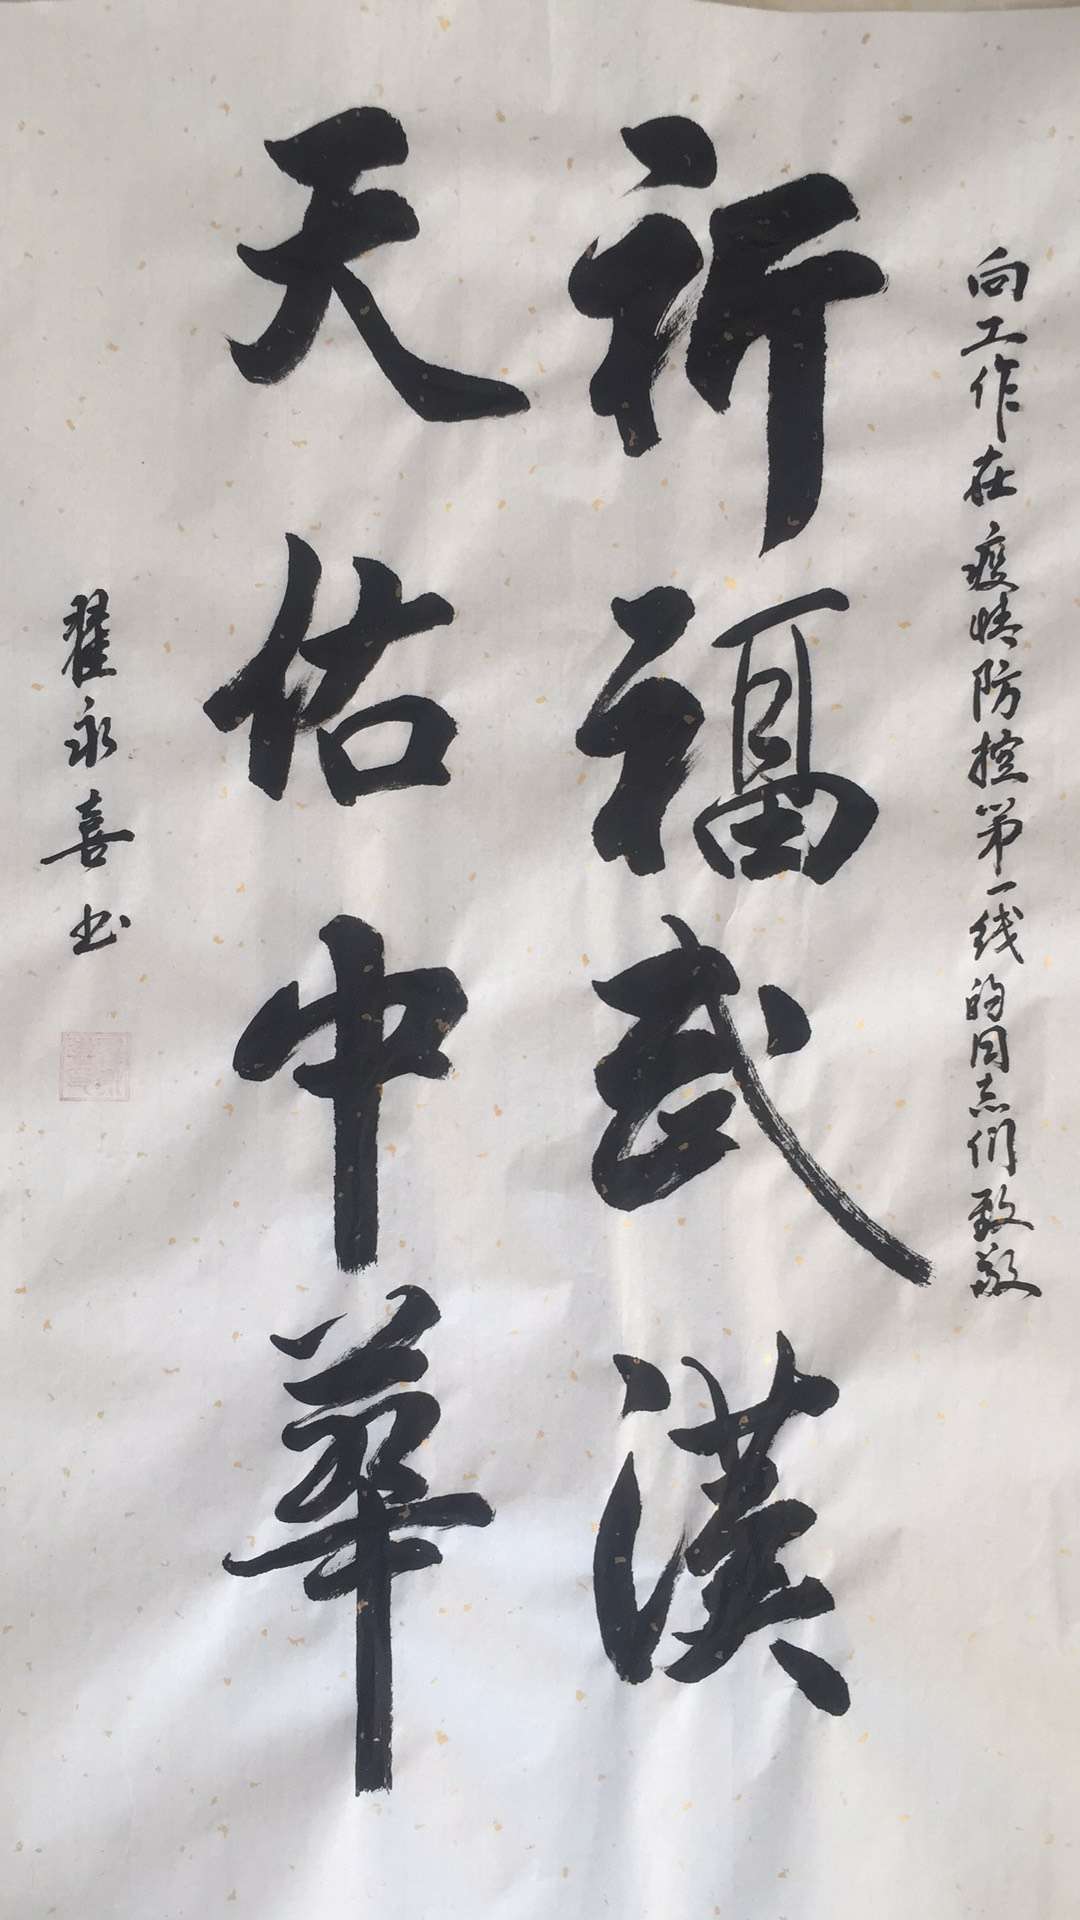 向工作在疫情防控第一线的同志们致敬
祈福武漢
天佑中華
翟永喜书